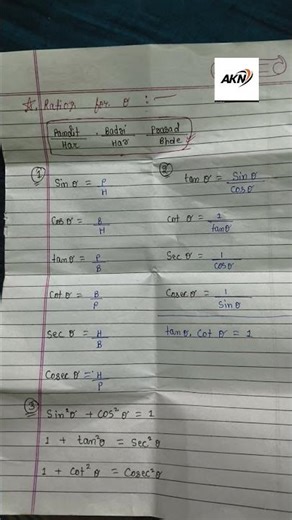 AKN
☆ Ratios for θ :-
Pandit Badri Prasad
Har Har Bhole
①
Sin θ = P/H
Cos θ = B/H
tan θ = P/B
Cot θ = B/P
Sec θ = H/B
Cosec θ = H/P
②
tan θ = Sin θ/Cos θ
Cot θ = 1/tan θ
Sec θ = 1/Cos θ
Cosec θ = 1/Sin θ
tan θ. Cot θ = 1
③
Sin² θ + Cos² θ = 1
1 + tan² θ = Sec² θ
1 + Cot² θ = Cosec² θ